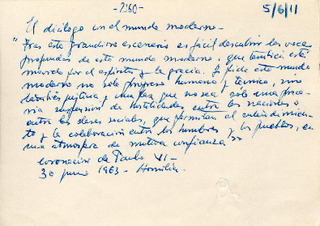 -2160-
5/6/11
El diálogo en el mundo moderno-
"Tras este grandioso escenario es fácil descubrir las voces
profundas de este mundo moderno, que también está
movido por el espíritu y la gracia. Se pide este mundo
moderno no sólo progreso humano, técnico, sino
también justicia y una paz que no sea sólo una preca-
ria suspensión de hostilidades entre las naciones o
entre las clases sociales, que permitan al entendimien-
to y la colaboración entre los hombres y los pueblos, en
una atmósfera de mutua confianza"
coronación de Paulo VI-
30 junio 1963- Homilía.